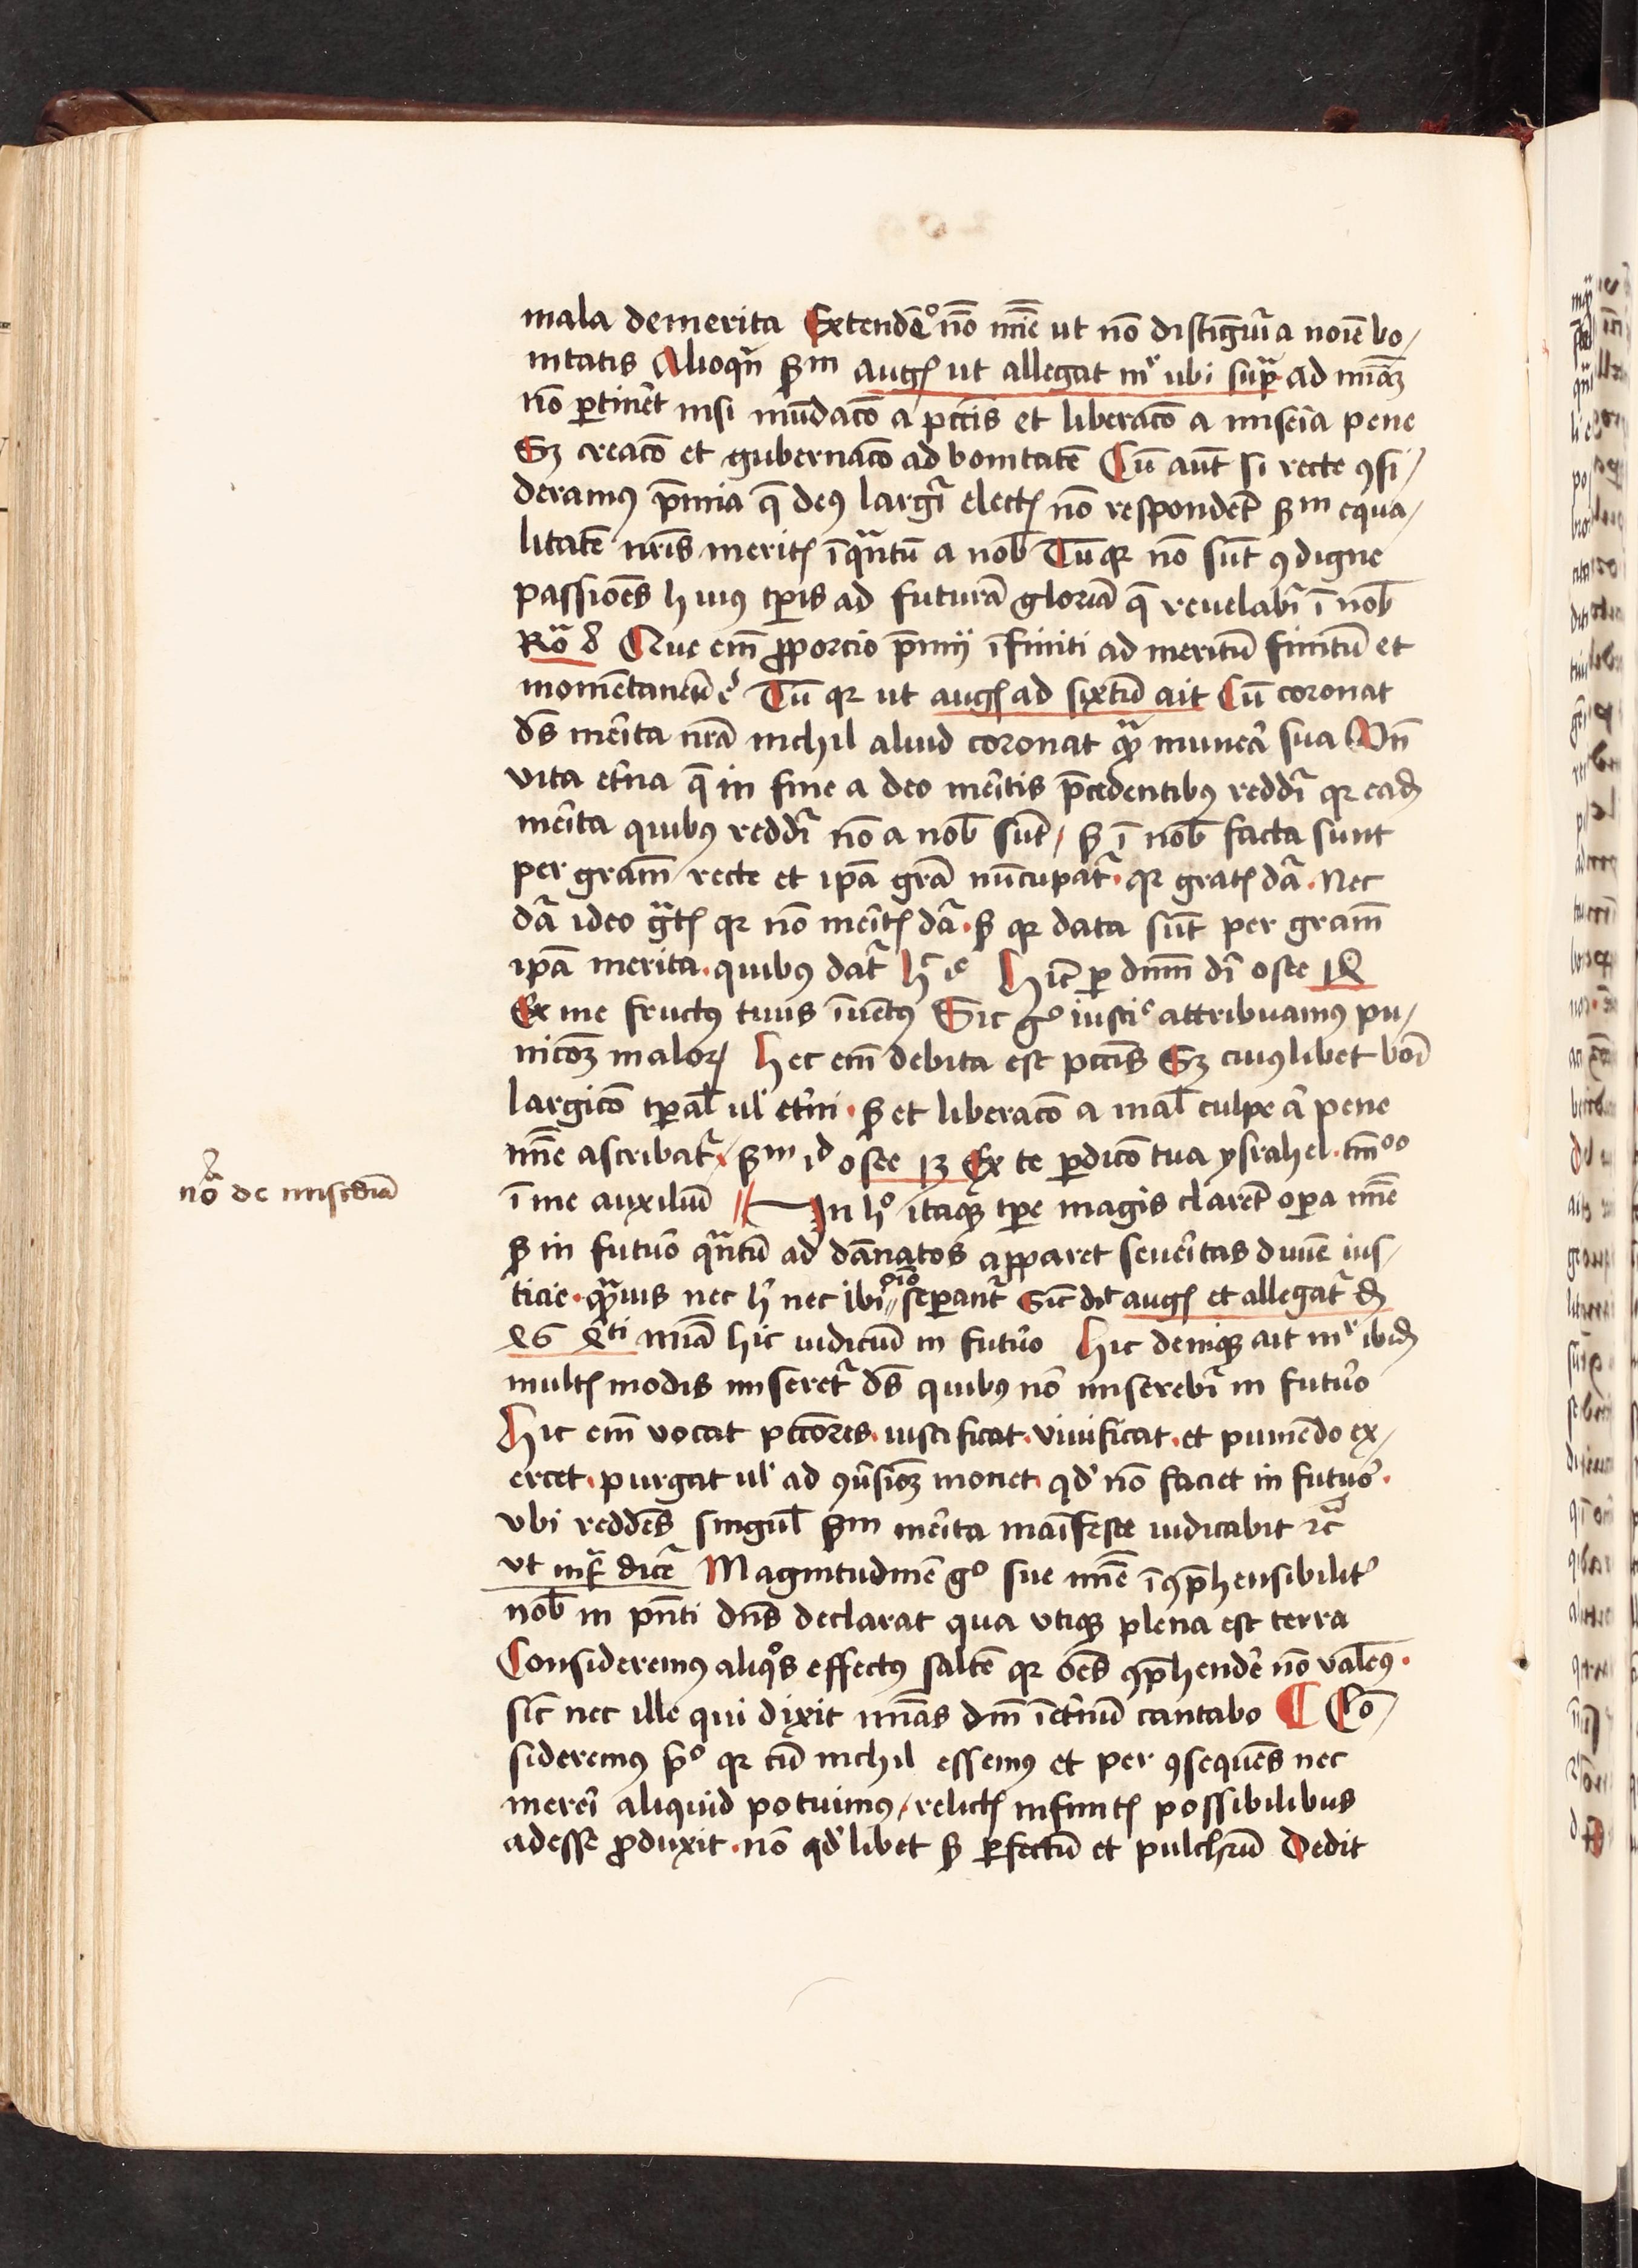 mala demerita Extendēdo nō mīe ut nō distīgwīa noīe bo/
nitatis Alioqn̄ scdm augꝰ ut allegat mgr ubi supra ad mīam
nō ꝑtinēt nisi mūdacō a pctīs et liberacō a miseīa pene
Sꝫ creacō et gubernacō ad bonitatē Cū aut̄ si recte ꝯsi/
deramꝰ p̄mia q̄ deꝰ largit̄ elect̄ nō respondet̄ scdm equa/
litatē nr̄is merit̄ īqntū a nob̄ Tūqꝛ nō sūt ꝯdigne
passiōes huiꝰ tꝑis ad futurā gloriā q̄ reuelabit̄ ī nob̄
Ro 8 Que em̄ ꝓporcio p̄mij īfiniti ad meritū finitū et
momētaneū ē Tū qꝛ ut augꝰ ad sixtū ait Cū coronat
ds̄ mēita nr̄a nichil aliud coronat qm̄ muneā sua Vn̄
vita et̄na q̄ in fine a deo mēitis p̄cedentibꝰ reddit̄ qꝛ eadē
mēita quibꝰ reddit̄ nō a nob̄ sūt / sꝫ ī nob̄ facta sunt
per gram̄ recte et ip̄a gr̄a nūcupat̄ · qꝛ grat̄ dat̄ · Nec
dat̄ ideo grat̄ qꝛ nō mēit̄ dat̄ · sꝫ qꝛ data sūt per gram̄
ip̄a merita · quibꝰ dat̄ hc ie Hīc ꝑ dnm̄ dr̄ osee 14
Ex me fructꝰ tuus īuētꝰ Sic gͦ iusticie attribuamꝰ pu/
nicōꝫ maloꝝ Hec em̄ debita est pctīs Sꝫ cuiꝰlibet boī
largicō tꝑal̄ ul̄ et̄ni · sꝫ et liberacō a mal̄ culpe ac̄ pene
mīe ascribat̄ scdm id osee 13 Ex te ꝑdicō tua ysrahel · tm̄oo
nō de misc̄dia
ī me auxiliū // In hͦ itaqꝫ tꝑe magis claret̄ oꝑa mīe
sꝫ in futuro qntū ad dānatos apparet seueītas diuīe ius/
ticie · qmuis nec hͥ nec ibi oīo seꝑant̄ Sic dic̄ augꝰ et allegat̄ d
46 4ti mīa hic iudiciū in futuro Hic deniqꝫ ait mgr ibidē
mult̄ modis miseret̄ ds̄ quibꝰ nō miserebit̄ in futuro
Hic em̄ vocat pctōres · iustificat · viuificat · et puniēdo ex/
ercet · purgat ul̄ ad ꝯu̓sioꝫ monet · qd̓ nō faciet in futuro ·
vbi reddēs singul̄ scdm mēita maīfeste iudicabit ꝛc̄
vt infra dicet̄ Magnitudinē gͦ sue mīe īꝯp̄hensibilit̓
nob̄ in pn̄ti dns̄ declarat qua vtiqꝫ plena est terra
Consideremꝰ aliqͦs effectꝰ saltē qꝛ oēs ꝯp̄hendē nō valemꝰ ·
sic̄ nec ille qui dixit mīas dm̄ īet̄nū cantabo ¶ Cō/
sideremꝰ pͦ qꝛ cū nichil essemꝰ et per ꝯsequēs nec
mereī aliquid potuimꝰ / relict̄ infinit̄ possibilibus
adesse ꝓduxit · nō qd̓libet sꝫ ꝑfectū et pulchrū Dedit